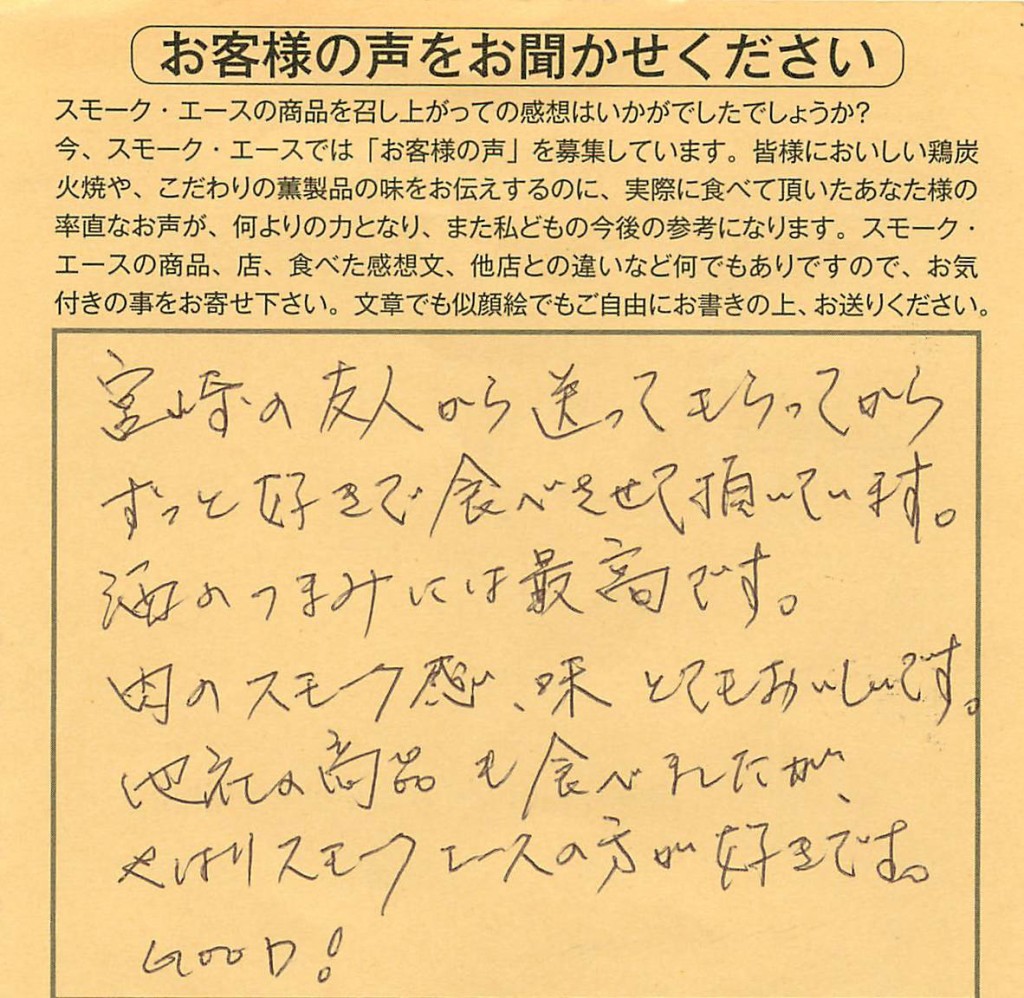 お客様の声をお聞かせください
スモーク・エースの商品を召し上がっての感想はいかがでしたでしょうか?
今、スモーク・エースでは「お客様の声」を募集しています。皆様においしい鶏炭
火焼や、こだわりの薫製品の味をお伝えするのに、実際に食べて頂いたあなた様の
率直なお声が、何よりの力となり、また私どもの今後の参考になります。スモーク・
エースの商品、店、食べた感想文、他店との違いなど何でもありですので、お気
付きの事をお寄せ下さい。文章でも似顔絵でもご自由にお書きの上、お送りください。
宮崎の友人から送ってもらってから
ずっと好きで食べさせて頂いています。
酒のつまみには最高です。
肉のスモーク感、味とてもおいしいです。
他社の商品も食べましたが、
やはりスモークエースの方が好きです。
GOOD!